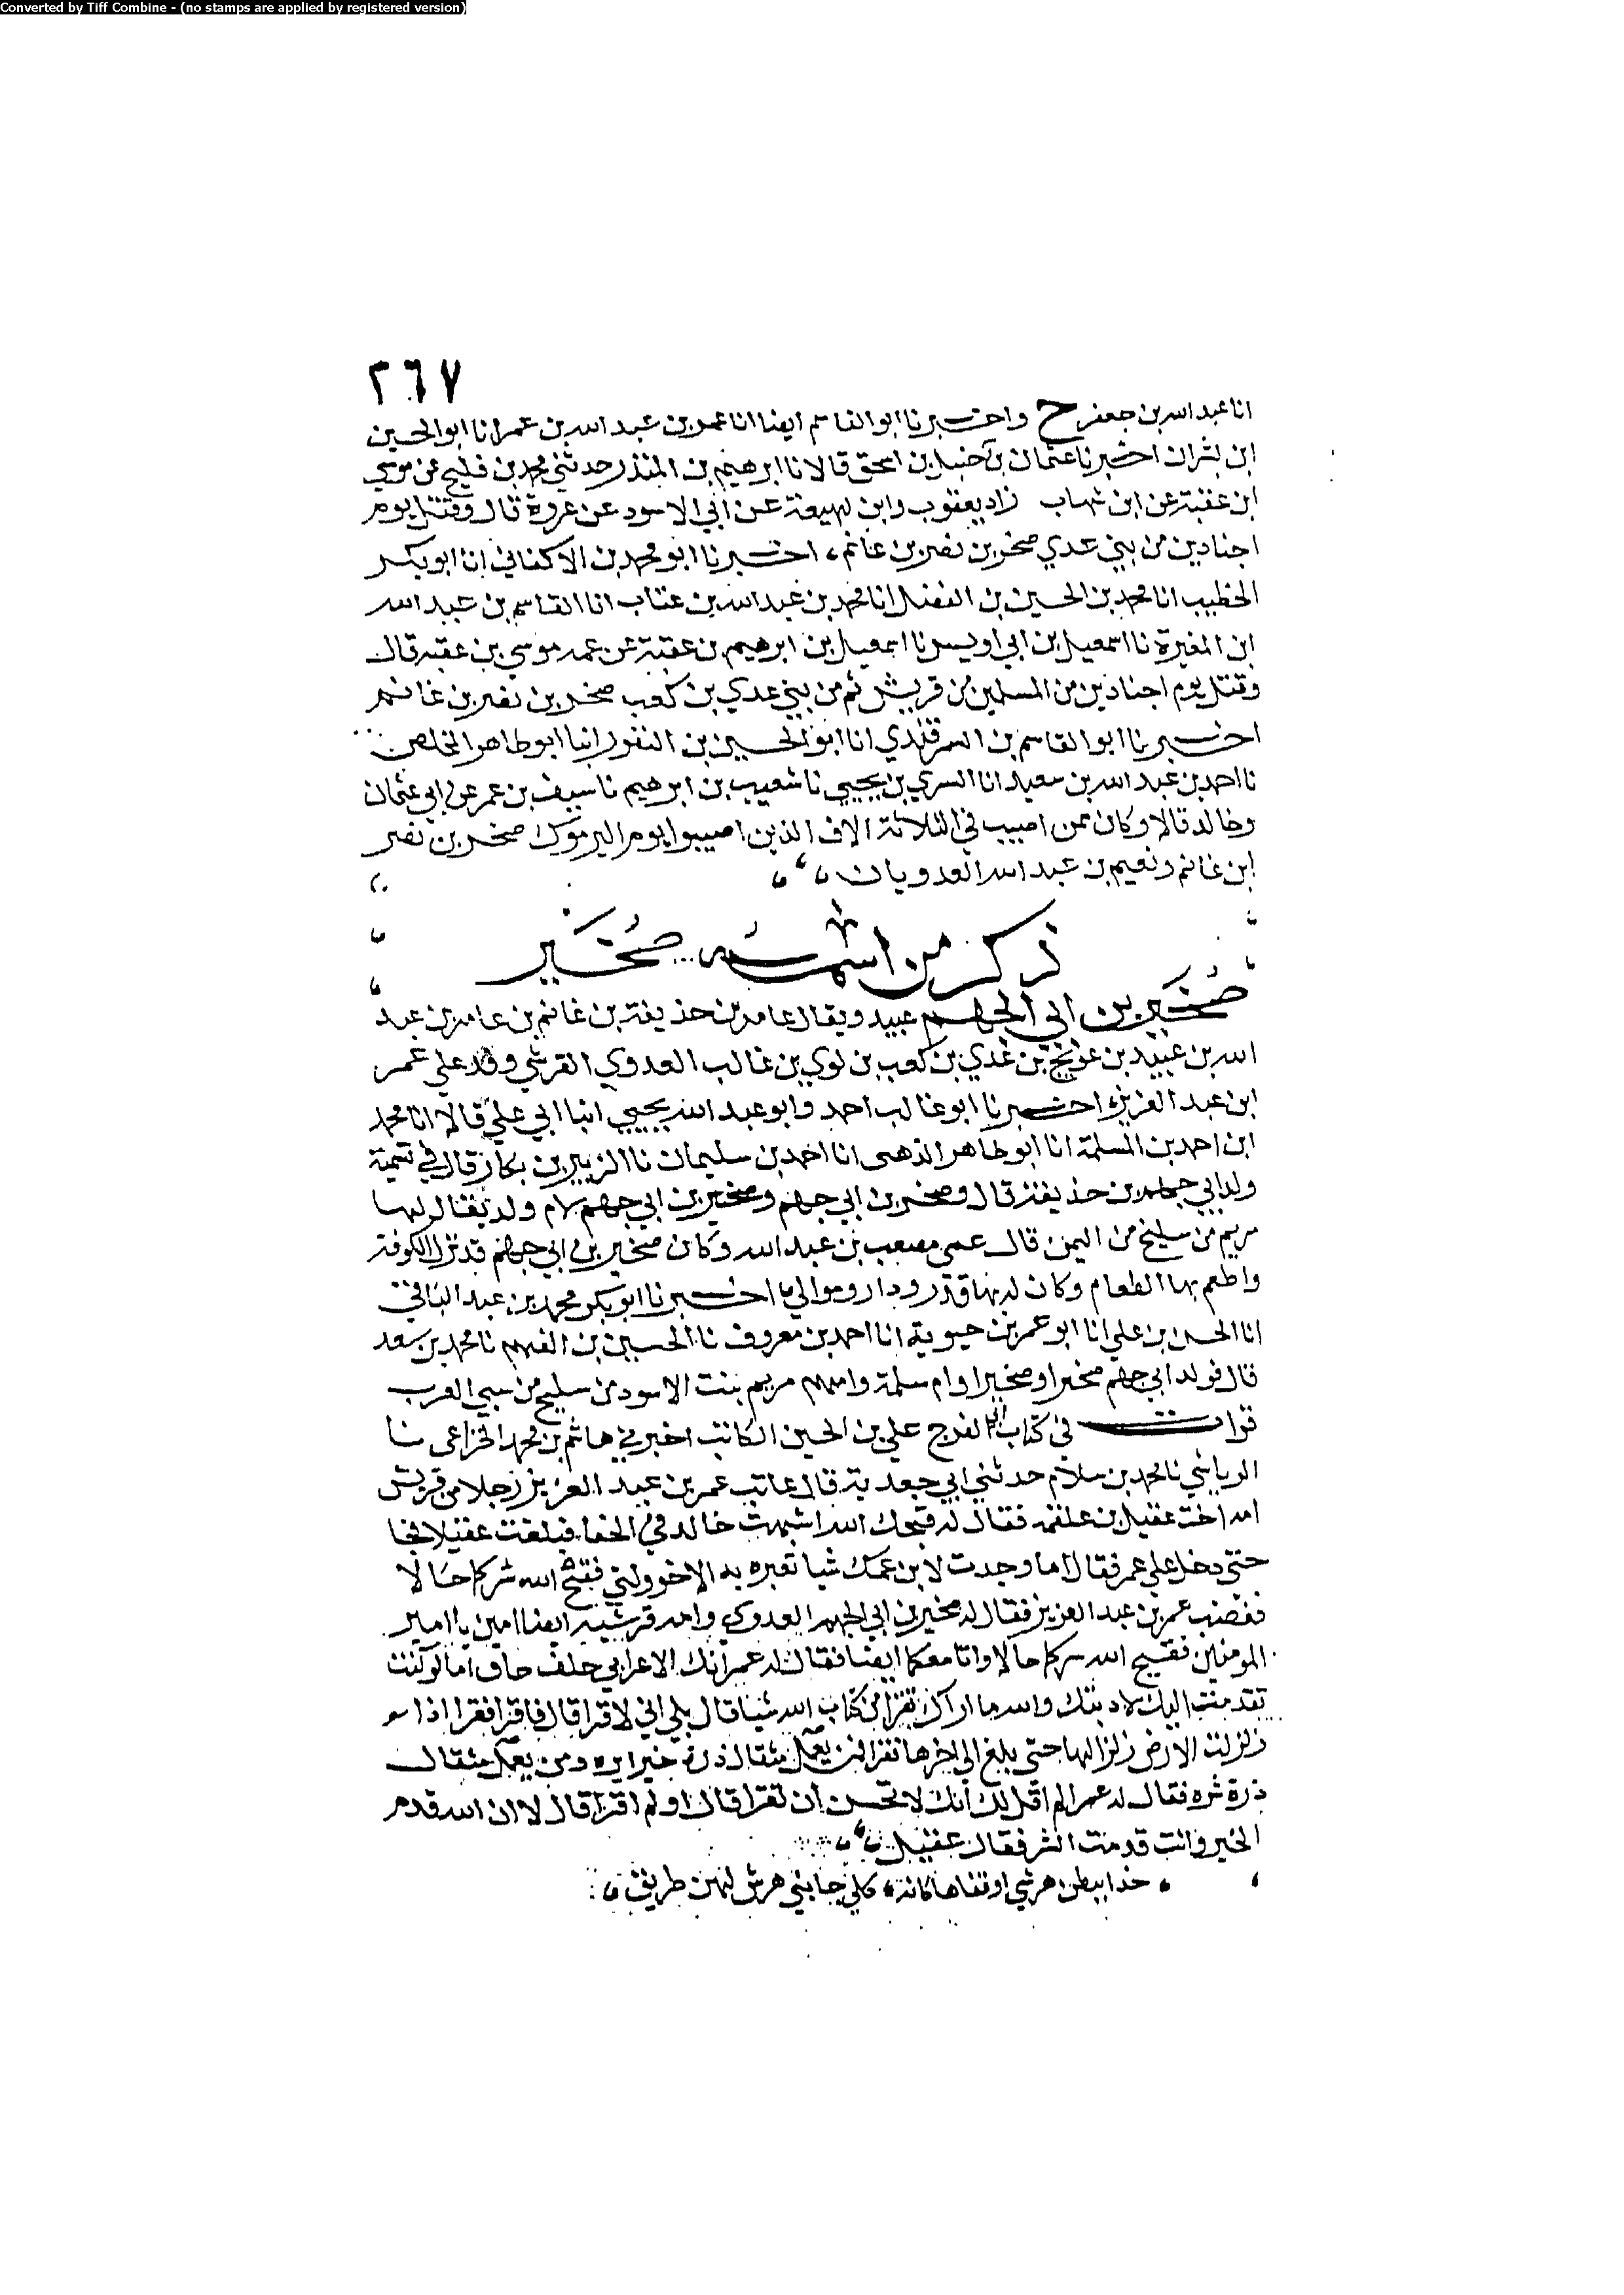 Converted by Tiff Combine - (no stamps are applied by registered version)
٢٦٧
انا عبد الله بن جعفر ح واخبرنا ابو القاسم ايضا انا عمر بن عبد الله بن عمر انا ابو الحسين
ابن بشران اخبرنا عثمان بن حنبل بن اسحق قالا نا ابرهيم بن المنذر حدثني محمد بن فليح عن موسي
ابن عقبة عن ابن شهاب زاد يعقوب وابن لهيعة عن ابي الاسود عن عروة قال وقتل يوم
اجنادين من بني عدي صخر بن نصر بن غانم، اخبرنا ابو محمد بن الاكفاني انا ابو بكر
الخطيب انا محمد بن الحسين بن الفضل انا محمد بن عبد الله بن عتاب انا القاسم بن عبد الله
ابن المغيرة نا اسمعيل بن ابي اويس نا اسمعيل بن ابرهيم بن عقبة عن عمه موسي بن عقبة قال
وقتل يوم اجنادين من المسلمين من قريش ثم من بني عدي بن كعب صخر بن نصر بن غانم
اخبرنا ابو القاسم بن السمرقندي انا ابو الحسين بن النقور انبا ابو طاهر المخلص
نا احمد بن عبد الله بن سعيد انا السري بن يحيي نا شعيب بن ابرهيم نا سيف بن عمر عن ابي عثمان
وخالد قالا وكان ممن اصيب في الثلاثة الاف الذين اصيبوا يوم اليرموك صخر بن نصر
ابن غانم ونعيم بن عبد الله العدويان
ذكر من اسمه صُخَير
صُخَير بن ابي الجهم عبيد ويقال عامر بن حذيفة بن غانم بن عامر بن عبد
الله بن عبيد بن عويج بن عدي بن كعب بن لوي بن غالب العدوي القرشي وفد علي عمر
ابن عبد العزيز، اخبرنا ابو غالب احمد وابو عبد الله يحيي انبا ابي علي قالا انا محمد
ابن احمد بن المسلمة انا ابو طاهر الذهبى انا احمد بن سليمان نا الزبير بن بكار قال في تسمية
ولد ابي جهم بن حذيفة قال وصخر بن ابي جهم وصخير بن ابي جهم لام ولد يقال لها
مريم من سليح من اليمن قال عمى مصعب بن عبد الله وكان صخير بن ابي جهم قد نزل الكوفة
واطعم بها الطعام وكان له بها قدر ودار وموالي اخبرنا ابو بكر محمد بن عبد الباقي
انا الحسن بن علي انا ابو عمر بن حيوية انا احمد بن معروف نا الحسين بن الفهم نا محمد بن سعد
قال فولد ابي جهم صخرا وصخيرا وام سلمة وامهم مريم بنت الاسود من سليح من سبي العرب
قرات في كتاب ابي الفرج علي بن الحسين الكاتب اخبرني هاشم بن محمد الخزاعى نا
الرياشي نا محمد بن سلام حدثني ابي جعدية قال عاتب عمر بن عبد العزيز رجلا من قريش
امه اخت عقيل بن علفة فقال له قبحك الله اشبهت خالك في الجفا فبلغت عقيلا فجا
حتى دخل علي عمر فقال اما وجدت لابن عمك شيا تعيره به الا خوولتي فقبح الله شركما خالا
فغضب عمر بن عبد العزيز فقال له صخير بن ابي الجهم العدوي وامه قرشية ايضا امين يا امير
المومنين فقبح الله شركما خالا وانا معكما ايضا فقال له عمر انك لاعرابي جلف جاف اما لو كنت
تقدمت اليك لادبتك والله ما اراك تقرا من كتاب الله شيا قال بلي اني لاقرا قال فاقرا فقرا اذا
زلزلت الارض زلزالها حتى بلغ الي اخرها فقرا فمن يعمل مثقال ذرة خيرا يره ومن يعمل مثقال
ذرة شره فقال له عمر الم اقل لك انك لا تحسن ان تقرا قال اولم اقرا قال لا ان الله قدم
الخير وانت قدمت الشر فقال عقيل
خذا بطن هرشي او قفاها فانه، كلي جانبي هرش لهن طريق